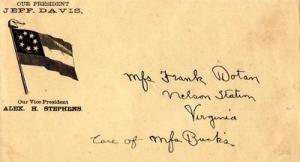 OUR PRESIDENT
JEFF. DAVIS,
Our Vice President
ALEX. H. STEPHENS.
Mfs Frank Dotan
Nelson Station
Virginia
Care of Mfs Bucks